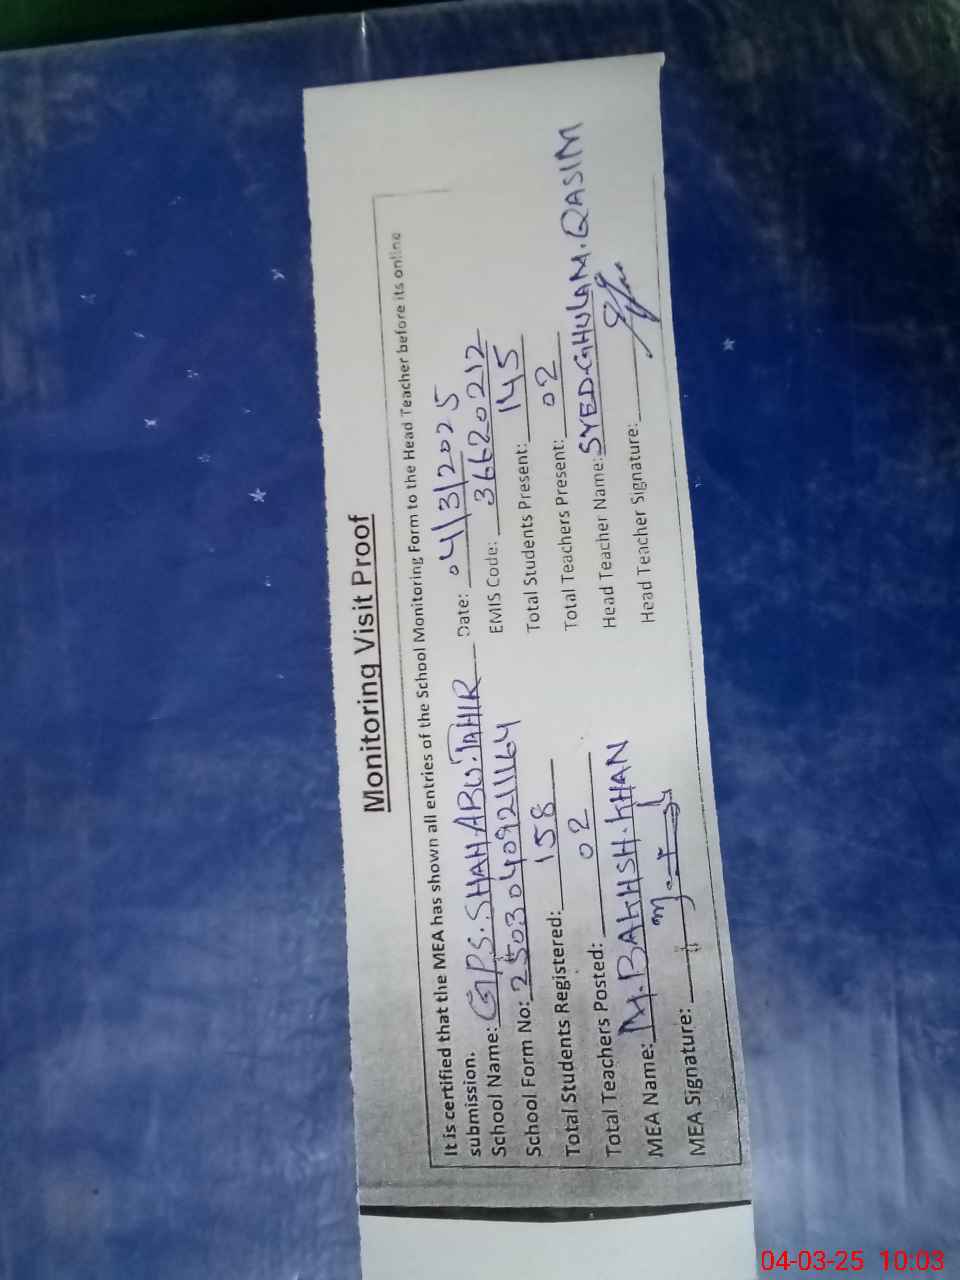 Monitoring Visit Proof
It is certified that the MEA has shown all entries of the School Monitoring Form to the Head Teacher before its online
submission.
School Name: GPS.SHAH.ABU.TAHIR Date: 04/3/2025
School Form No: 25030409211164 EMIS Code: 36620212
Total Students Registered: 158 Total Students Present: 145
Total Teachers Posted: 02 Total Teachers Present: 02
MEA Name: M.BAKHSH.KHAN Head Teacher Name: SYED.GHULAM.QASIM
MEA Signature: Head Teacher Signature:
04-03-25 10:03